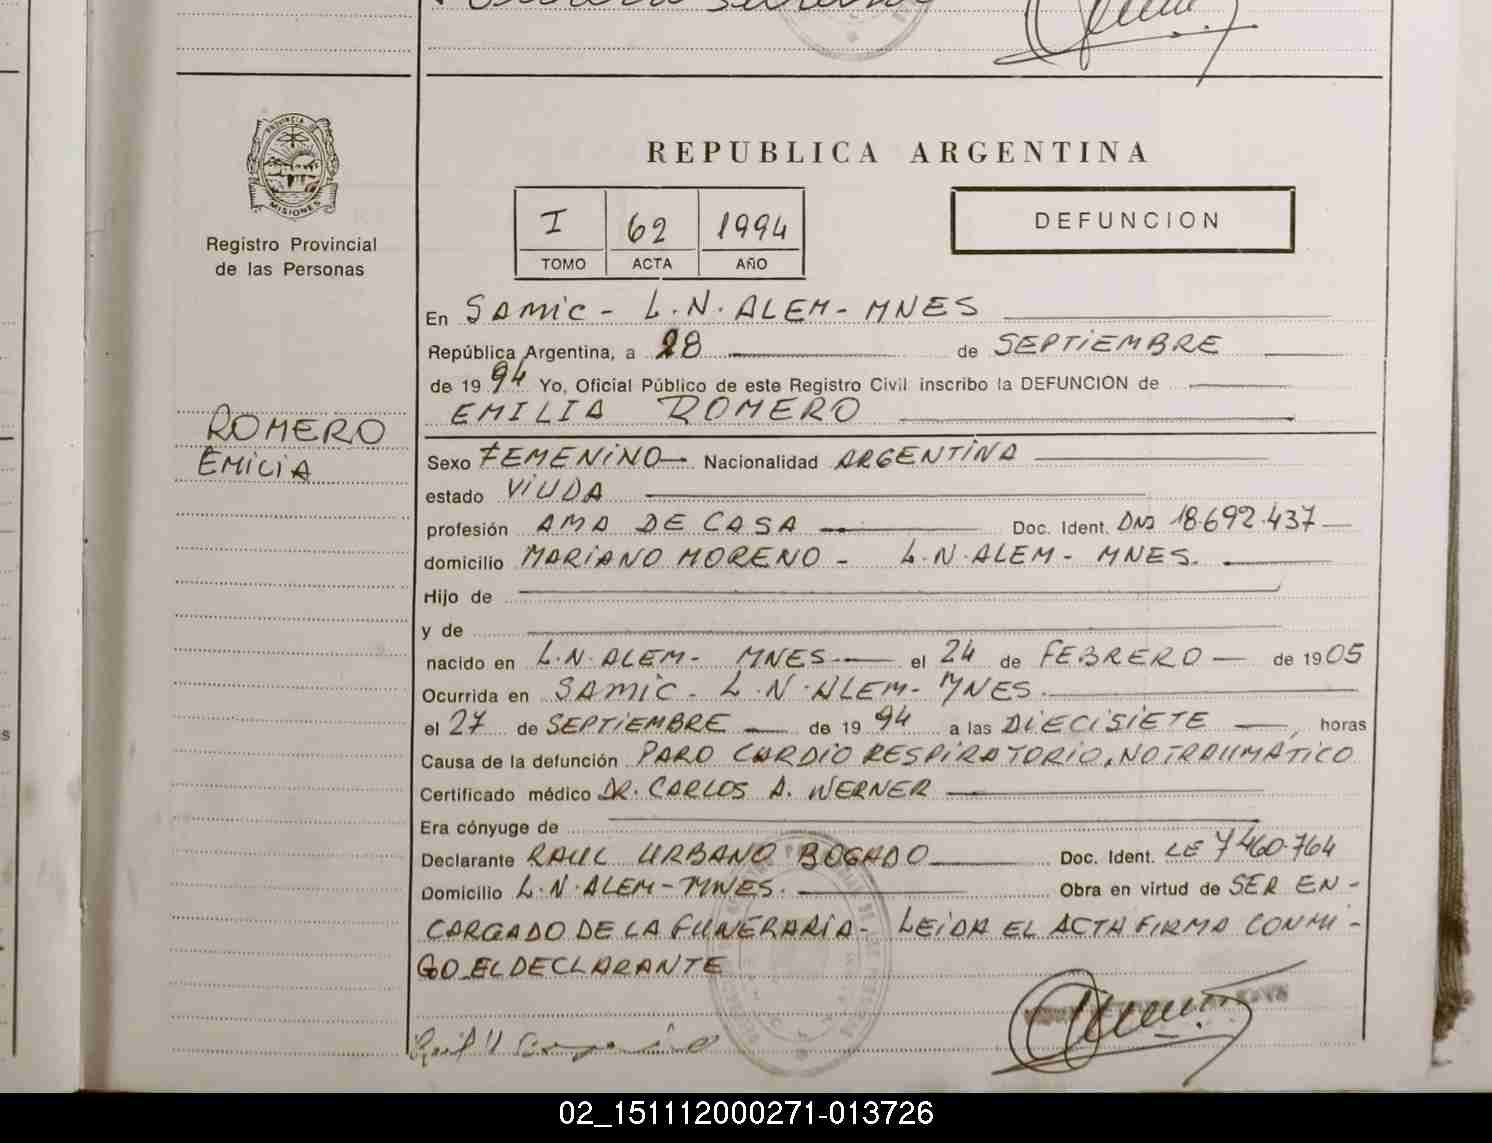 PROVINCIA DE
MISIONES
Registro Provincial
de las Personas
ROMERO
EMILIA
REPUBLICA ARGENTINA
I 62 1994
TOMO ACTA AÑO
DEFUNCION
En SAMIC - L.N. ALEM - MNES
República Argentina, a 28 de SEPTIEMBRE
de 19 94 Yo, Oficial Público de este Registro Civil inscribo la DEFUNCION de
EMILIA ROMERO
Sexo FEMENINO Nacionalidad ARGENTINA
estado VIUDA
profesión AMA DE CASA Doc. Ident. DNI 18.692.437
domicilio MARIANO MORENO - L.N. ALEM - MNES.
Hijo de
y de
nacido en L.N. ALEM - MNES el 24 de FEBRERO de 1905
Ocurrida en SAMIC - L.N. ALEM - MNES.
el 27 de SEPTIEMBRE de 19 94 a las DIECISIETE, horas
Causa de la defunción PARO CARDIO RESPIRATORIO, NO TRAUMATICO
Certificado médico DR. CARLOS A. WERNER
Era cónyuge de
Declarante RAUL URBANO BOGADO Doc. Ident. LE 7460.764
Domicilio L.N. ALEM - MNES. Obra en virtud de SER EN-
CARGADO DE LA FUNERARIA - LEIDA EL ACTA FIRMA CONMI-
GO EL DECLARANTE
02_151112000271-013726